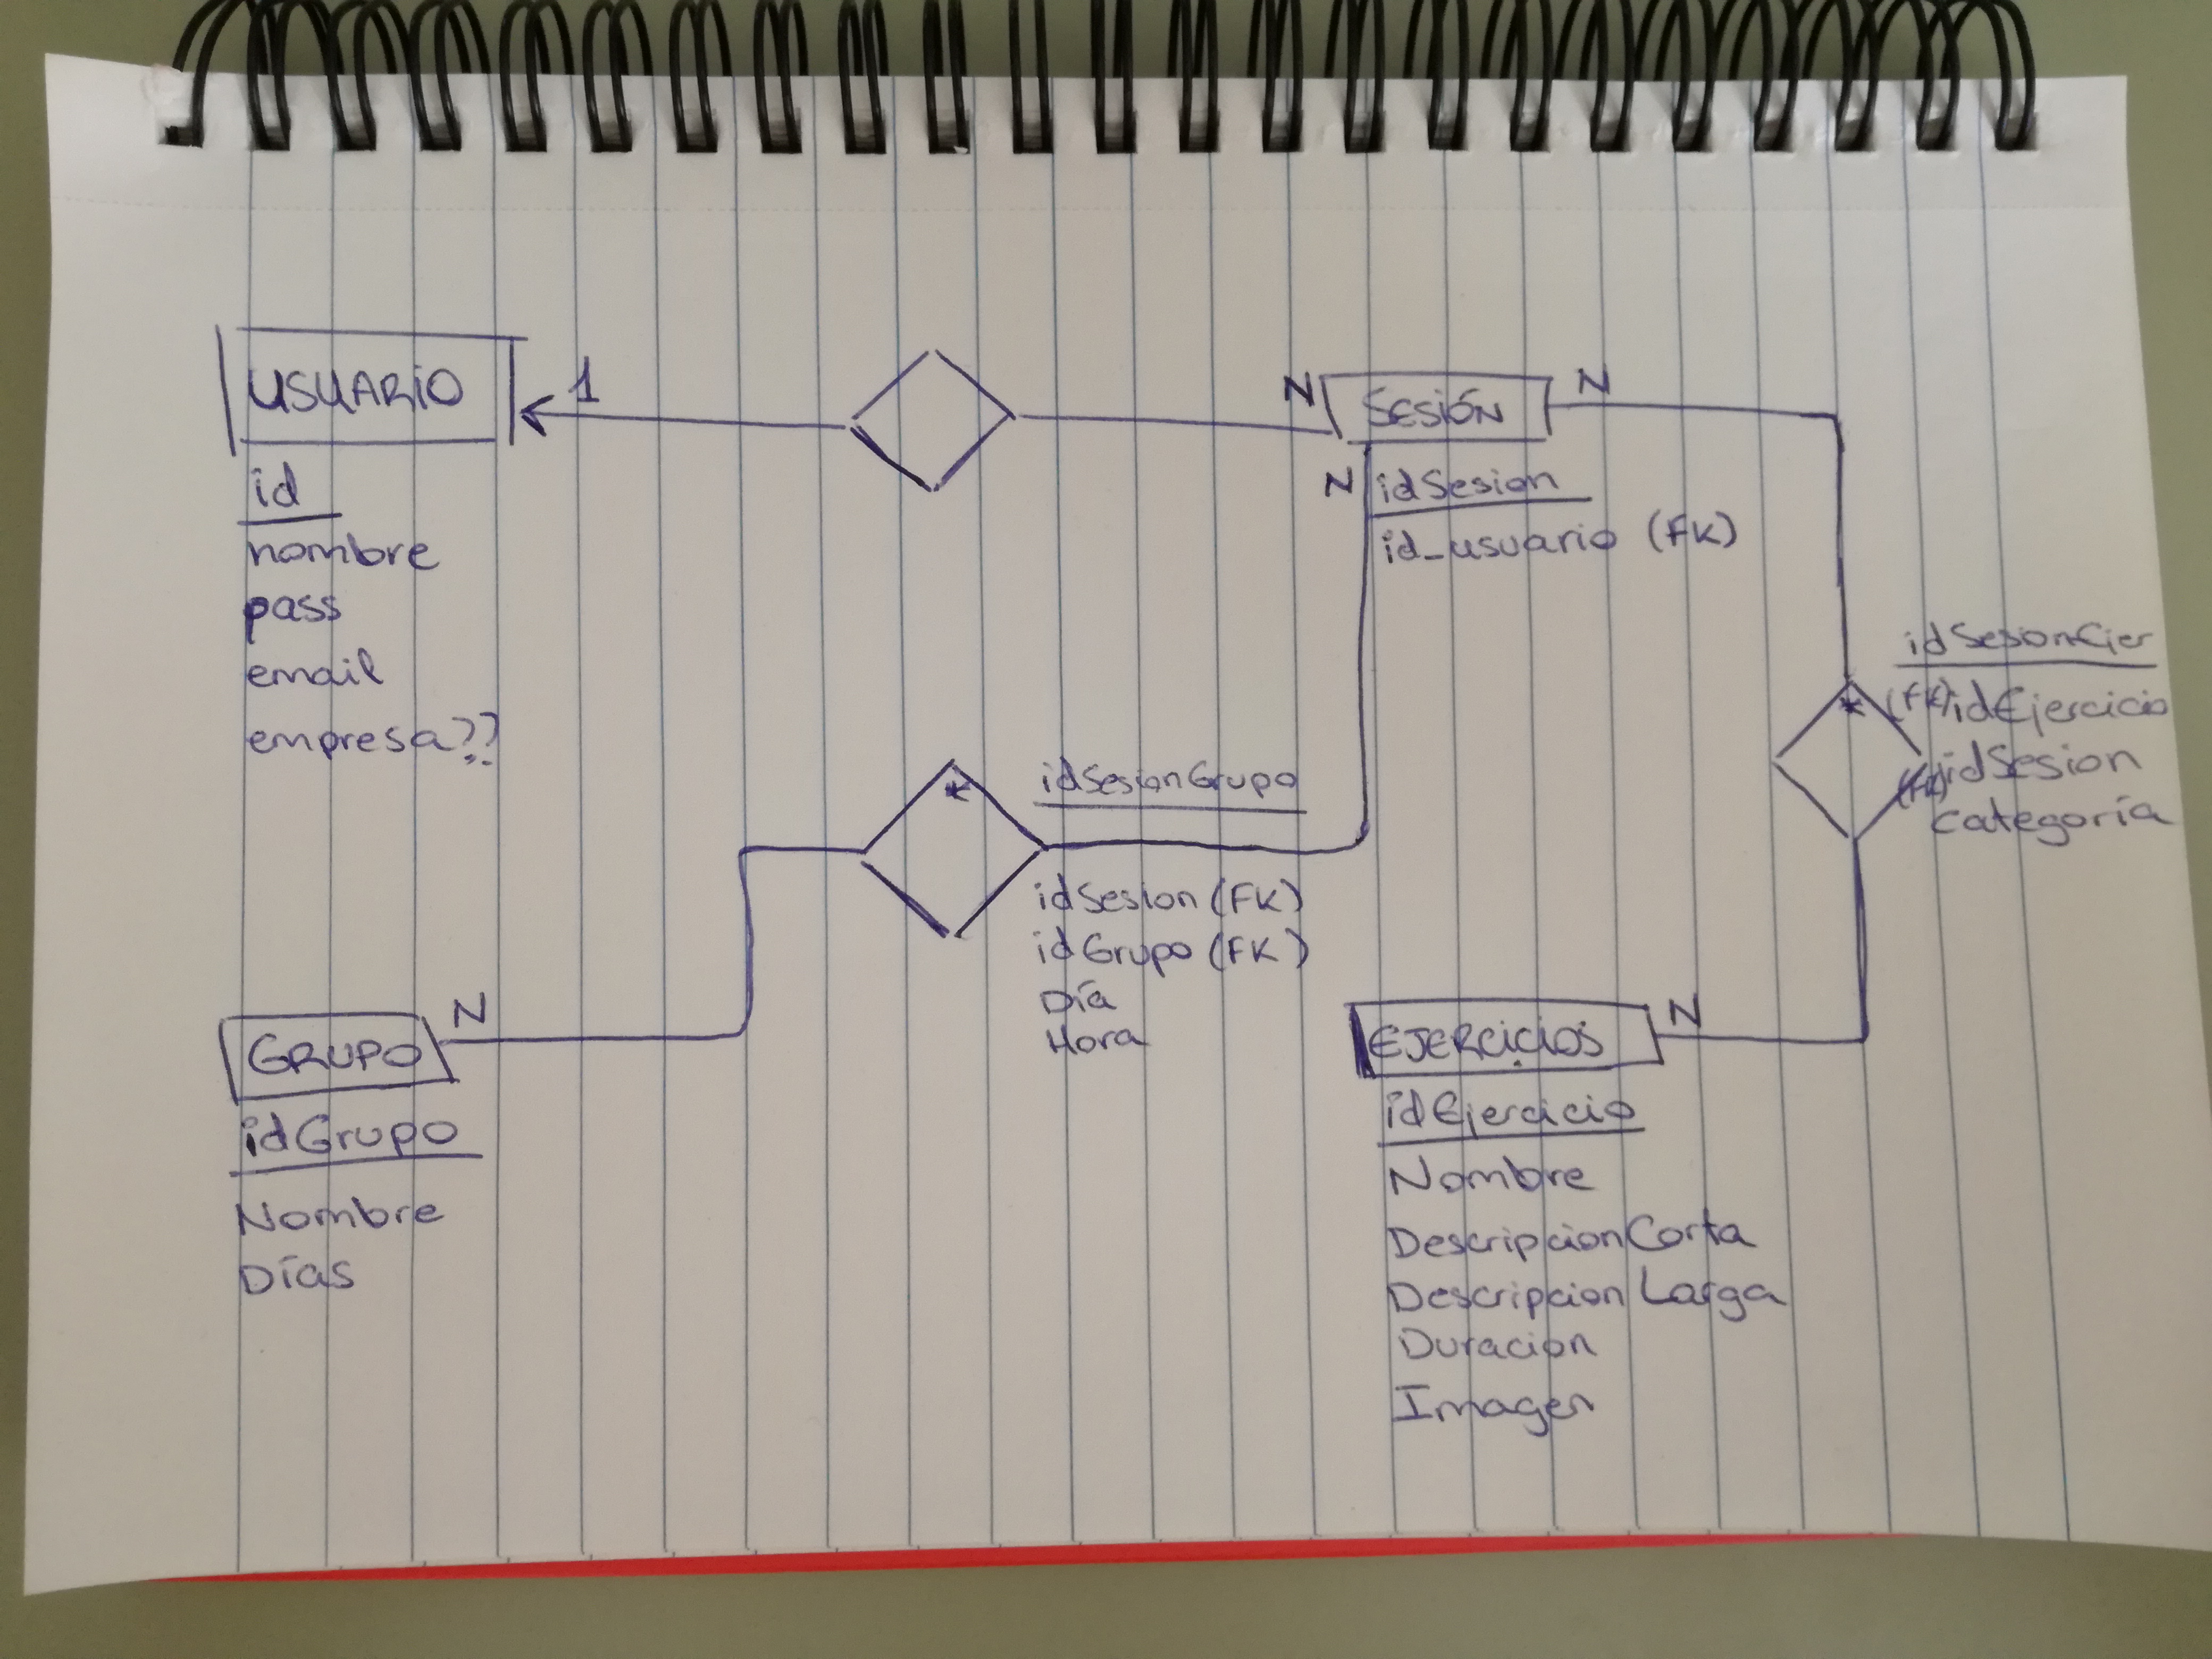 USUARIO
1
N
SESIÓN
N
id
nombre
pass
email
empresa??
N
idSesion
id_usuario (FK)
idSesionEjer
*
(FK) idEjercicio
(FK) idSesion
categoría
*
idSesionGrupo
idSesion (FK)
idGrupo (FK)
Día
Hora
GRUPO
N
idGrupo
Nombre
Días
EJERCICIOS
N
idEjercicio
Nombre
DescripcionCorta
Descripcion Larga
Duracion
Imagen